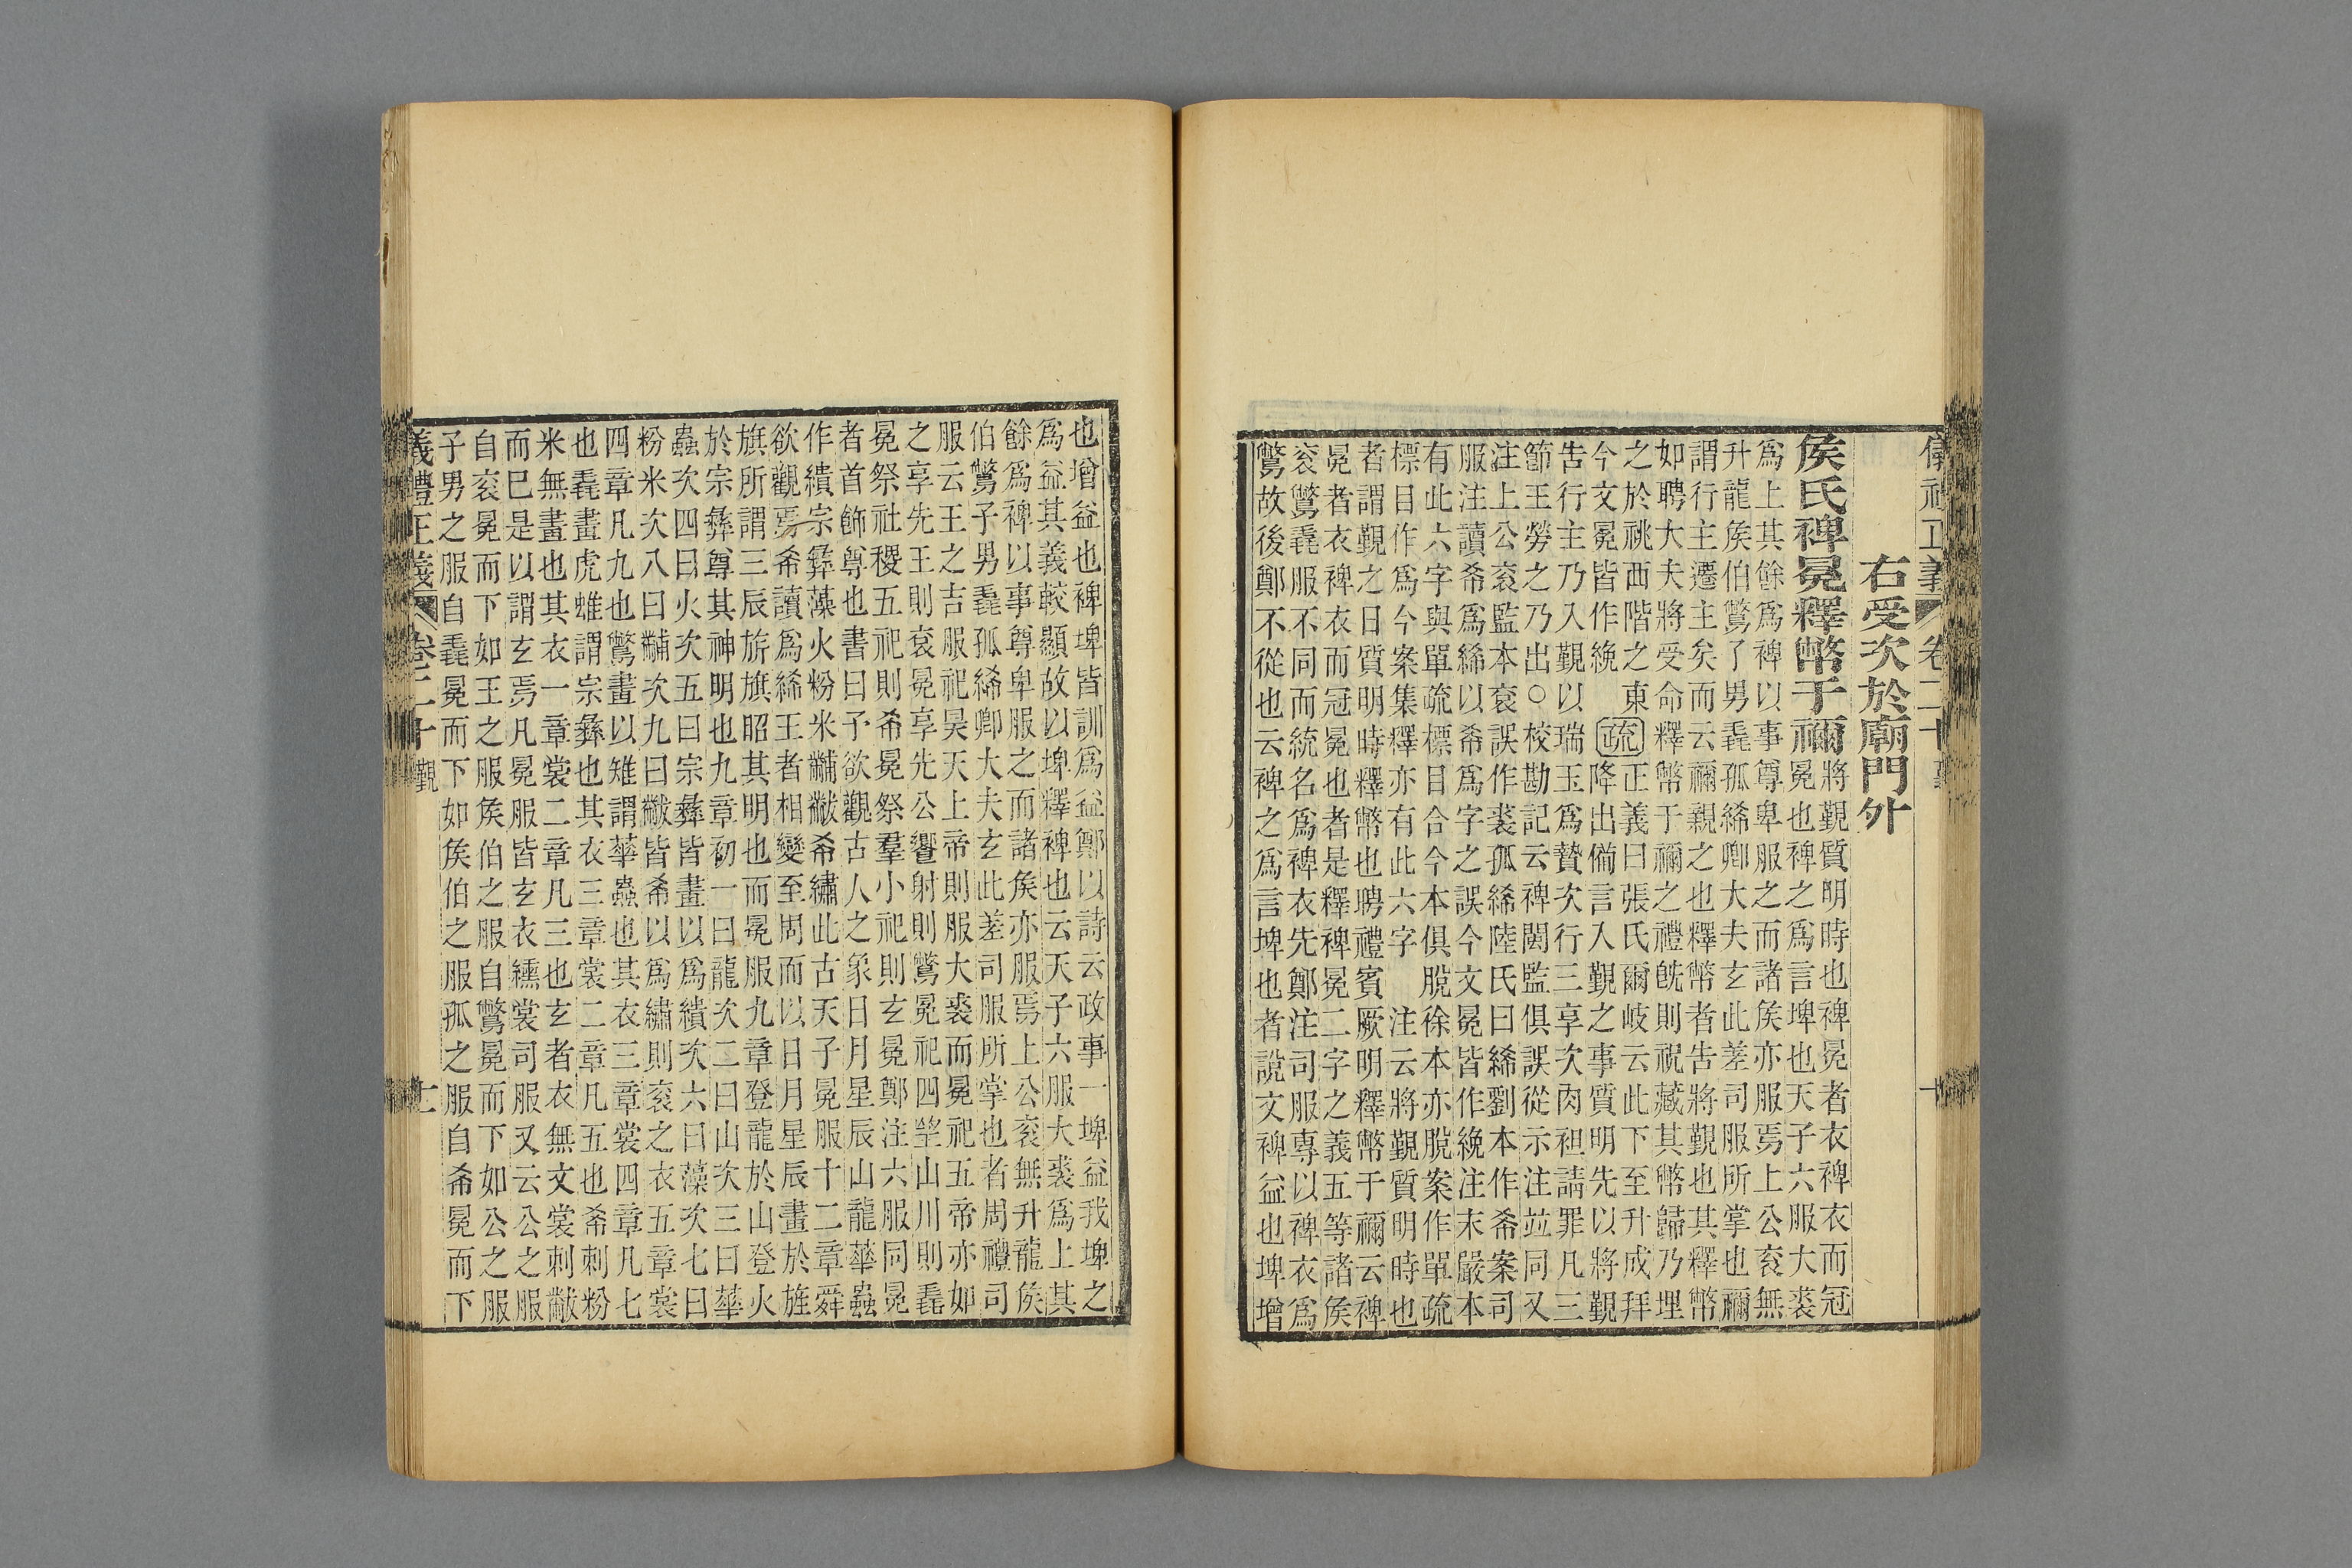 儀禮正義 卷二十 覲
右受次於廟門外
侯氏裨冕釋幣于禰
將覲質明時也裨冕者衣裨衣而冠
冕也裨之爲言埤也天子六服大裘
爲上其餘爲裨以事尊卑服之而諸侯亦服焉上公袞無
升龍侯伯鷩子男毳孤絺卿大夫玄此差司服所掌也禰
謂行主遷主矣而云禰親之也釋幣者告將覲也其釋幣
如聘大夫將受命釋幣于禰之禮旣則祝藏其幣歸乃埋
之於祧西階之東
今文冕皆作絻
疏
正義曰張氏爾岐云此下至升成拜
降出備言入覲之事質明先以將覲
告行主乃入覲以瑞玉爲贄次行三享次肉袒請罪凡三
節王勞之乃出○校勘記云裨閩監俱誤從示注並同又
注上公袞監本袞誤作裘孤絺陸氏曰絺劉本作希案司
服注讀希爲絺以希爲字之誤今文冕皆作絻注末嚴本
有此六字與單疏標目合今本俱脫徐本亦脫案作單疏
標目作爲今案集釋亦有此六字 注云將覲質明時也
者謂覲之日質明時釋幣也聘禮賓厥明釋幣于禰云裨
冕者衣裨衣而冠冕也者是釋裨冕二字之義五等諸侯
袞鷩毳服不同而統名爲裨衣先鄭注司服專以裨衣爲
鷩故後鄭不從也云裨之爲言埤也者說文裨益也埤增
也增益也裨埤皆訓爲益鄭以詩云政事一埤益我埤之
爲益其義較顯故以埤釋裨也云天子六服大裘爲上其
餘爲裨以事尊卑服之而諸侯亦服焉上公袞無升龍侯
伯鷩子男毳孤絺卿大夫玄此差司服所掌也者周禮司
服云王之吉服祀昊天上帝則服大裘而冕祀五帝亦如
之享先王則袞冕享先公饗射則鷩冕祀四望山川則毳
冕祭社稷五祀則希冕祭羣小祀則玄冕鄭注六服同冕
者首飾尊也書曰予欲觀古人之象日月星辰山龍華蟲
作繢宗彝藻火粉米黼黻希繡此古天子冕服十二章舜
欲觀焉希讀爲絺王者相變至周而以日月星辰畫於旌
旗所謂三辰旂旗昭其明也而冕服九章登龍於山登火
於宗彝尊其神明也九章初一曰龍次二曰山次三曰華
蟲次四曰火次五曰宗彝皆畫以爲繢次六曰藻次七曰
粉米次八曰黼次九曰黻皆希以爲繡則袞之衣五章裳
四章凡九也鷩畫以雉謂華蟲也其衣三章裳四章凡七
也毳畫虎蜼謂宗彝也其衣三章裳二章凡五也希刺粉
米無畫也其衣一章裳二章凡三也玄者衣無文裳刺黻
而已是以謂玄焉凡冕服皆玄衣纁裳司服又云公之服
自袞冕而下如王之服侯伯之服自鷩冕而下如公之服
子男之服自毳冕而下如侯伯之服孤之服自希冕而下
義禮正義 卷二十 覲